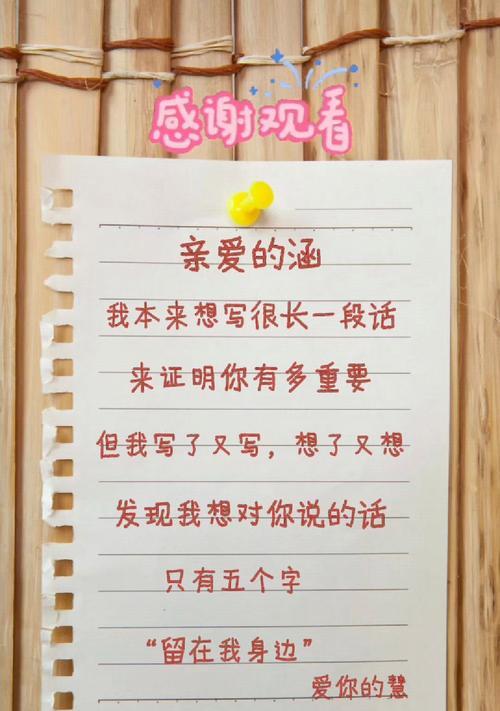 感谢观看
亲爱的涵
我本来想写很长一段话
来证明你有多重要
但我写了又写，想了又想
发现我想对你说的话
只有五个字
“留在我身边”
爱你的慧